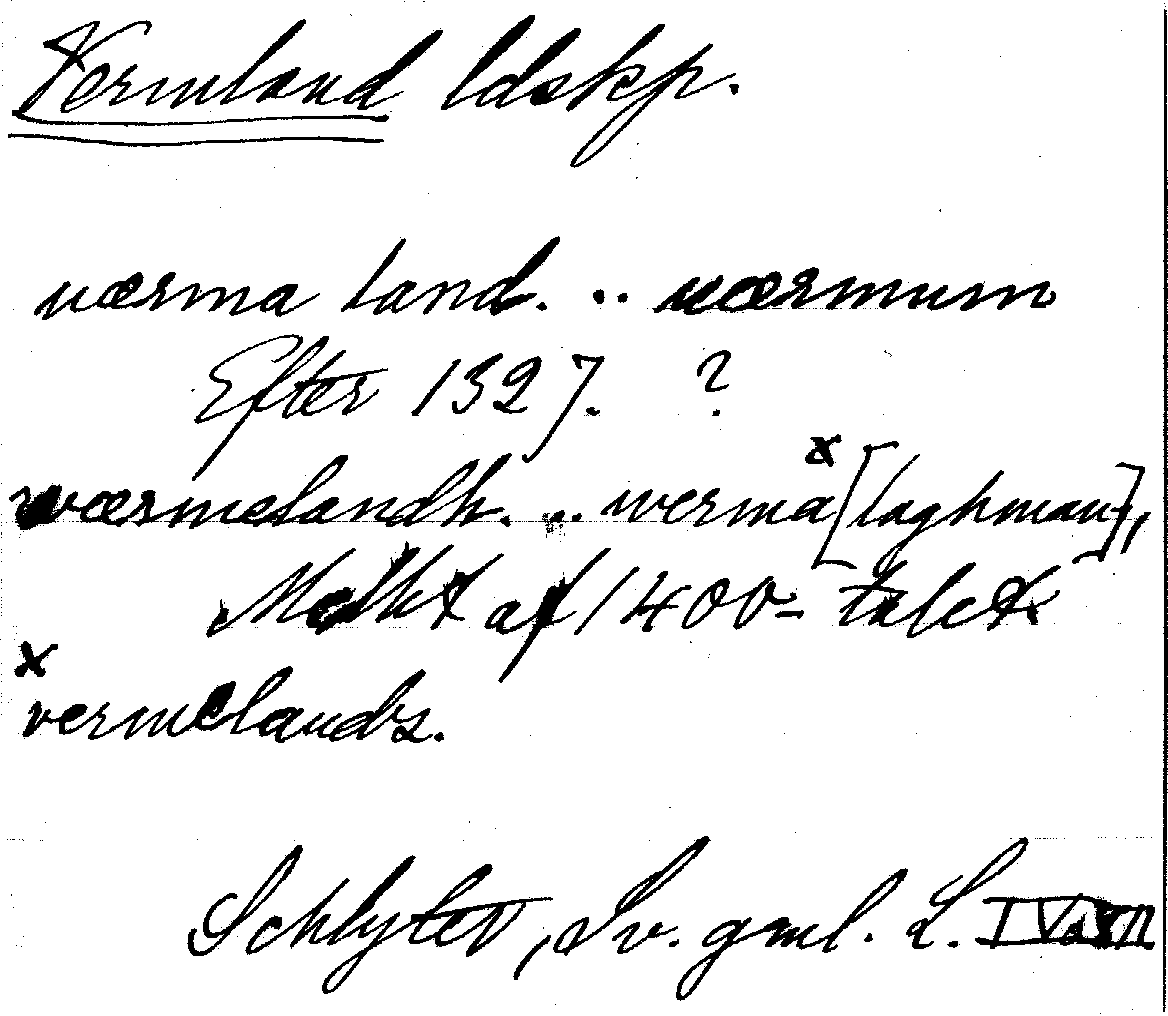 Vermland ldskp.
uærma land. .. uærmum
Efter 1327. ?
wærmelandh. ... werma x [laghman],
Medlt af 1400-talet
x
vermelands.
Schlyter, Sv. gml. L. I